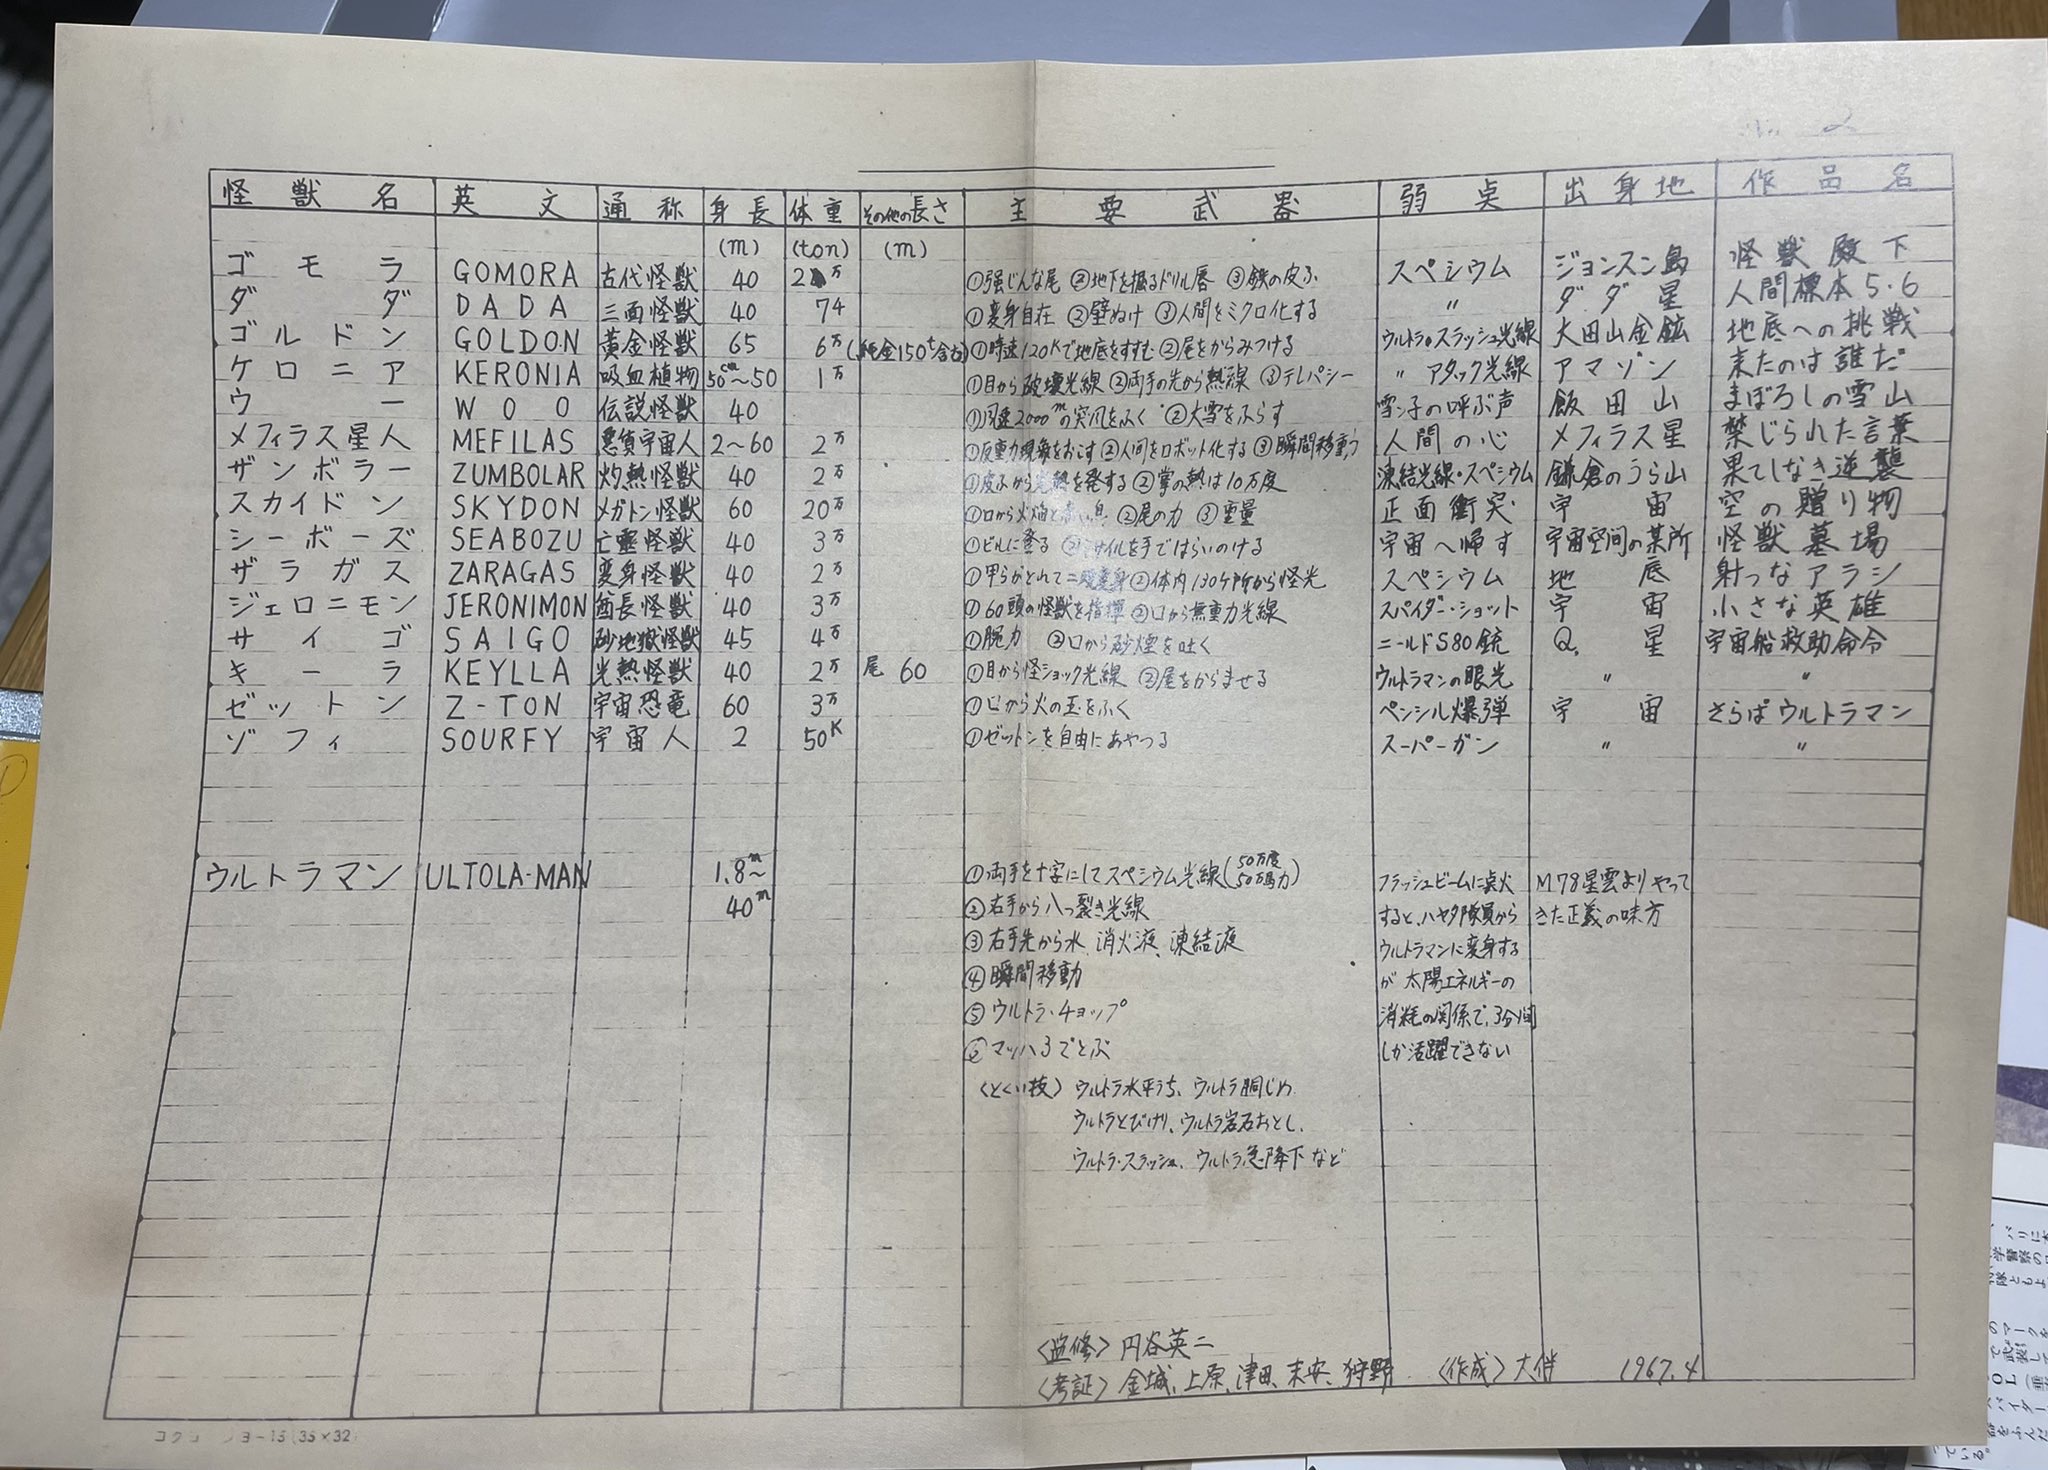 No. 2
怪獣名 英文 通称 身長 体重 その他の長さ 主要武器 弱点 出身地 作品名
(m) (ton) (m)
ゴモラ GOMORA 古代怪獣 40 2万 ①強じんな尾 ②地下を掘るドリル唇 ③鉄の皮ふ スペシウム ジョンスン島 怪獣殿下
ダダ DADA 三面怪獣 40 74 ①変身自在 ②壁ぬけ ③人間をミクロ化する 〃 ダダ星 人間標本5・6
ゴルドン GOLDON 黄金怪獣 65 6万(純金150t含む) ①時速120Kで地底をすすむ ②尾をからみつける ウルトラ・スラッシュ光線 大田山金鉱 地底への挑戦
ケロニア KERONIA 吸血植物 50cm〜50 1万 ①目から破壊光線 ②両手の先から熱線 ③テレパシー 〃 アタック光線 アマゾン 来たのは誰だ
ウー WOO 伝説怪獣 40 ①風速2000mの突風をふく ②大雪をふらす 雪ン子の呼ぶ声 飯田山 まぼろしの雪山
メフィラス星人 MEFILAS 悪質宇宙人 2〜60 2万 ①反重力現象をおこす ②人間をロボット化する ③瞬間移動 人間の心 メフィラス星 禁じられた言葉
ザンボラー ZUMBOLAR 灼熱怪獣 40 2万 ①皮ふから光熱を発する ②掌の熱は10万度 凍結光線・スペシウム 鎌倉のうら山 果てしなき逆襲
スカイドン SKYDON メガトン怪獣 60 20万 ①口から火焔と赤い息 ②尾の力 ③重量 正面衝突 宇宙 空の贈り物
シーボーズ SEABOZU 亡霊怪獣 40 3万 ①ビルに登る ②ミサイルを手ではらいのける 宇宙へ帰す 宇宙空間の某所 怪獣墓場
ザラガス ZARAGAS 変身怪獣 40 2万 ①甲らがとれて二段変身 ②体内130ケ所から怪光 スペシウム 地底 射つなアラシ
ジェロニモン JERONIMON 酋長怪獣 40 3万 ①60頭の怪獣を指揮 ②口から無重力光線 スパイダー・ショット 宇宙 小さな英雄
サイゴ SAIGO 砂地獄怪獣 45 4万 ①腕力 ②口から砂煙を吐く ニールドS80銃 Q.星 宇宙船救助命令
キーラ KEYLLA 光熱怪獣 40 2万 尾 60 ①目から怪ショック光線 ②尾をからませる ウルトラマンの眼光 〃 〃
ゼットン Z-TON 宇宙恐竜 60 3万 ①口から火の玉をふく ペンシル爆弾 宇宙 さらばウルトラマン
ゾフィ SOURFY 宇宙人 2 50K ①ゼットンを自由にあやつる スーパーガン 〃 〃
ウルトラマン ULTOLA-MAN 1.8m〜 ①両手を十字にしてスペシウム光線(50万度 50万馬力) フラッシュビームに点火 M78星雲よりやって
40m ②右手から八つ裂き光線 すると、ハヤタ隊員から きた正義の味方
③右手先から水、消火液、凍結液 ウルトラマンに変身する
④瞬間移動 が 太陽エネルギーの
⑤ウルトラ・チョップ 消耗の関係で、3分間
⑥マッハ3でとぶ しか活躍できない
〈とくい技〉 ウルトラ水平うち、ウルトラ胴じめ
ウルトラとびけり、ウルトラ岩石おとし、
ウルトラ・スラッシュ、ウルトラ急降下など
〈監修〉 円谷英二
〈考証〉 金城、上原、津田、末安、狩野 〈作成〉大伴 1967.4
コクヨ ヨ-15(35×32)
バリに本
学警察の
隊ともよ
のマークを
で武装して
OL(垂
パイダー
器をふんだ
ている。